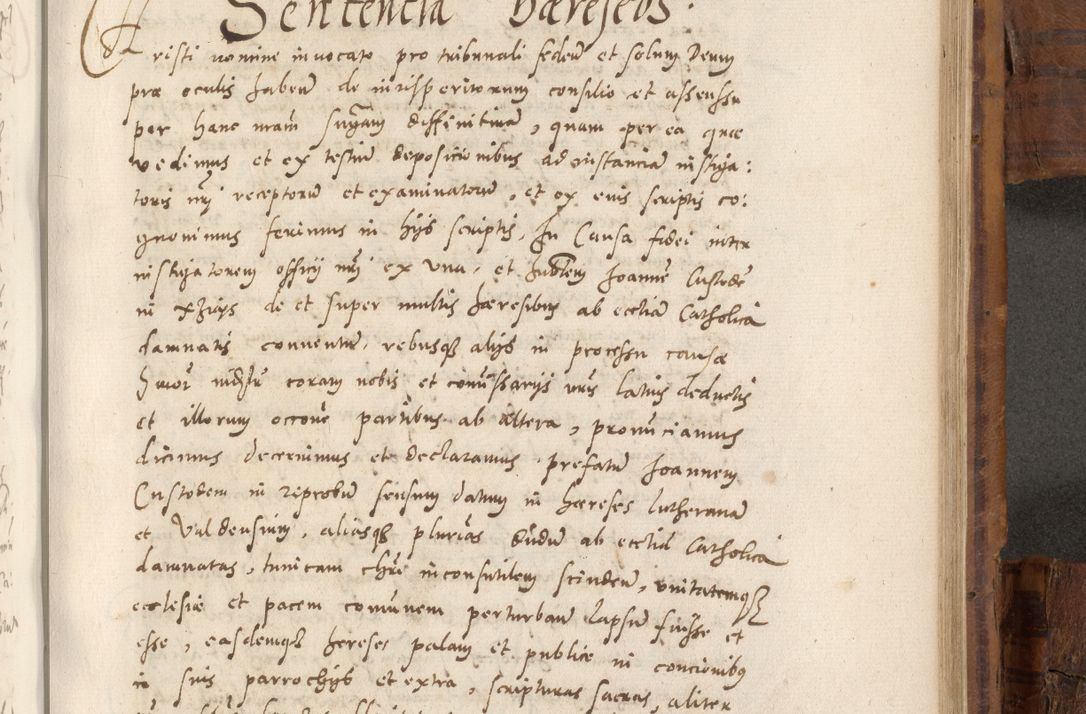 Sentencia hæreseos.
Christi nomine invocato pro tribunali seden͂ et solum Deum
præ oculis haben͂ de iurisperitorum consilio et assensu
per hanc nr̄am sn̄iam diffinitivā, quam per ea quæ
vedimus et ex testiū depositionibus ad instanciā instiga:
toris nr̄i receptorū et examinatorū, et ex eius scriptis co:
gnovimus ferimus in hijs scriptis. In Causa fidei inter
instigatorem officij nr̄i ex una, et Joannē Custodē
in de et super multis hæresibus ab ecctiā Catholica
damnatis conventū, rebusq3 alijs in processu causæ
coram nobis et com̄issarijs nr̄is latius deductis
et illorum occōne partibus ab altera, pronūciamus
dicimus decernimus et declaramus, prefatū Joannem
Custodem in reprobū sensum datum in hæreses lutheranā
et Valdensium, aliasq3 plurīas dudū ab ecctiā Catholica
damnatas, tunicam chrī inconsutilem scinden͂, unitatemq3
ecclesiæ et pacem comūnem perturban͂ lapsū fuisse et
esse, easdemq3 hereses palam et publice in concionibus
in suis parrochijs et extra, scripturas sacras, aliter